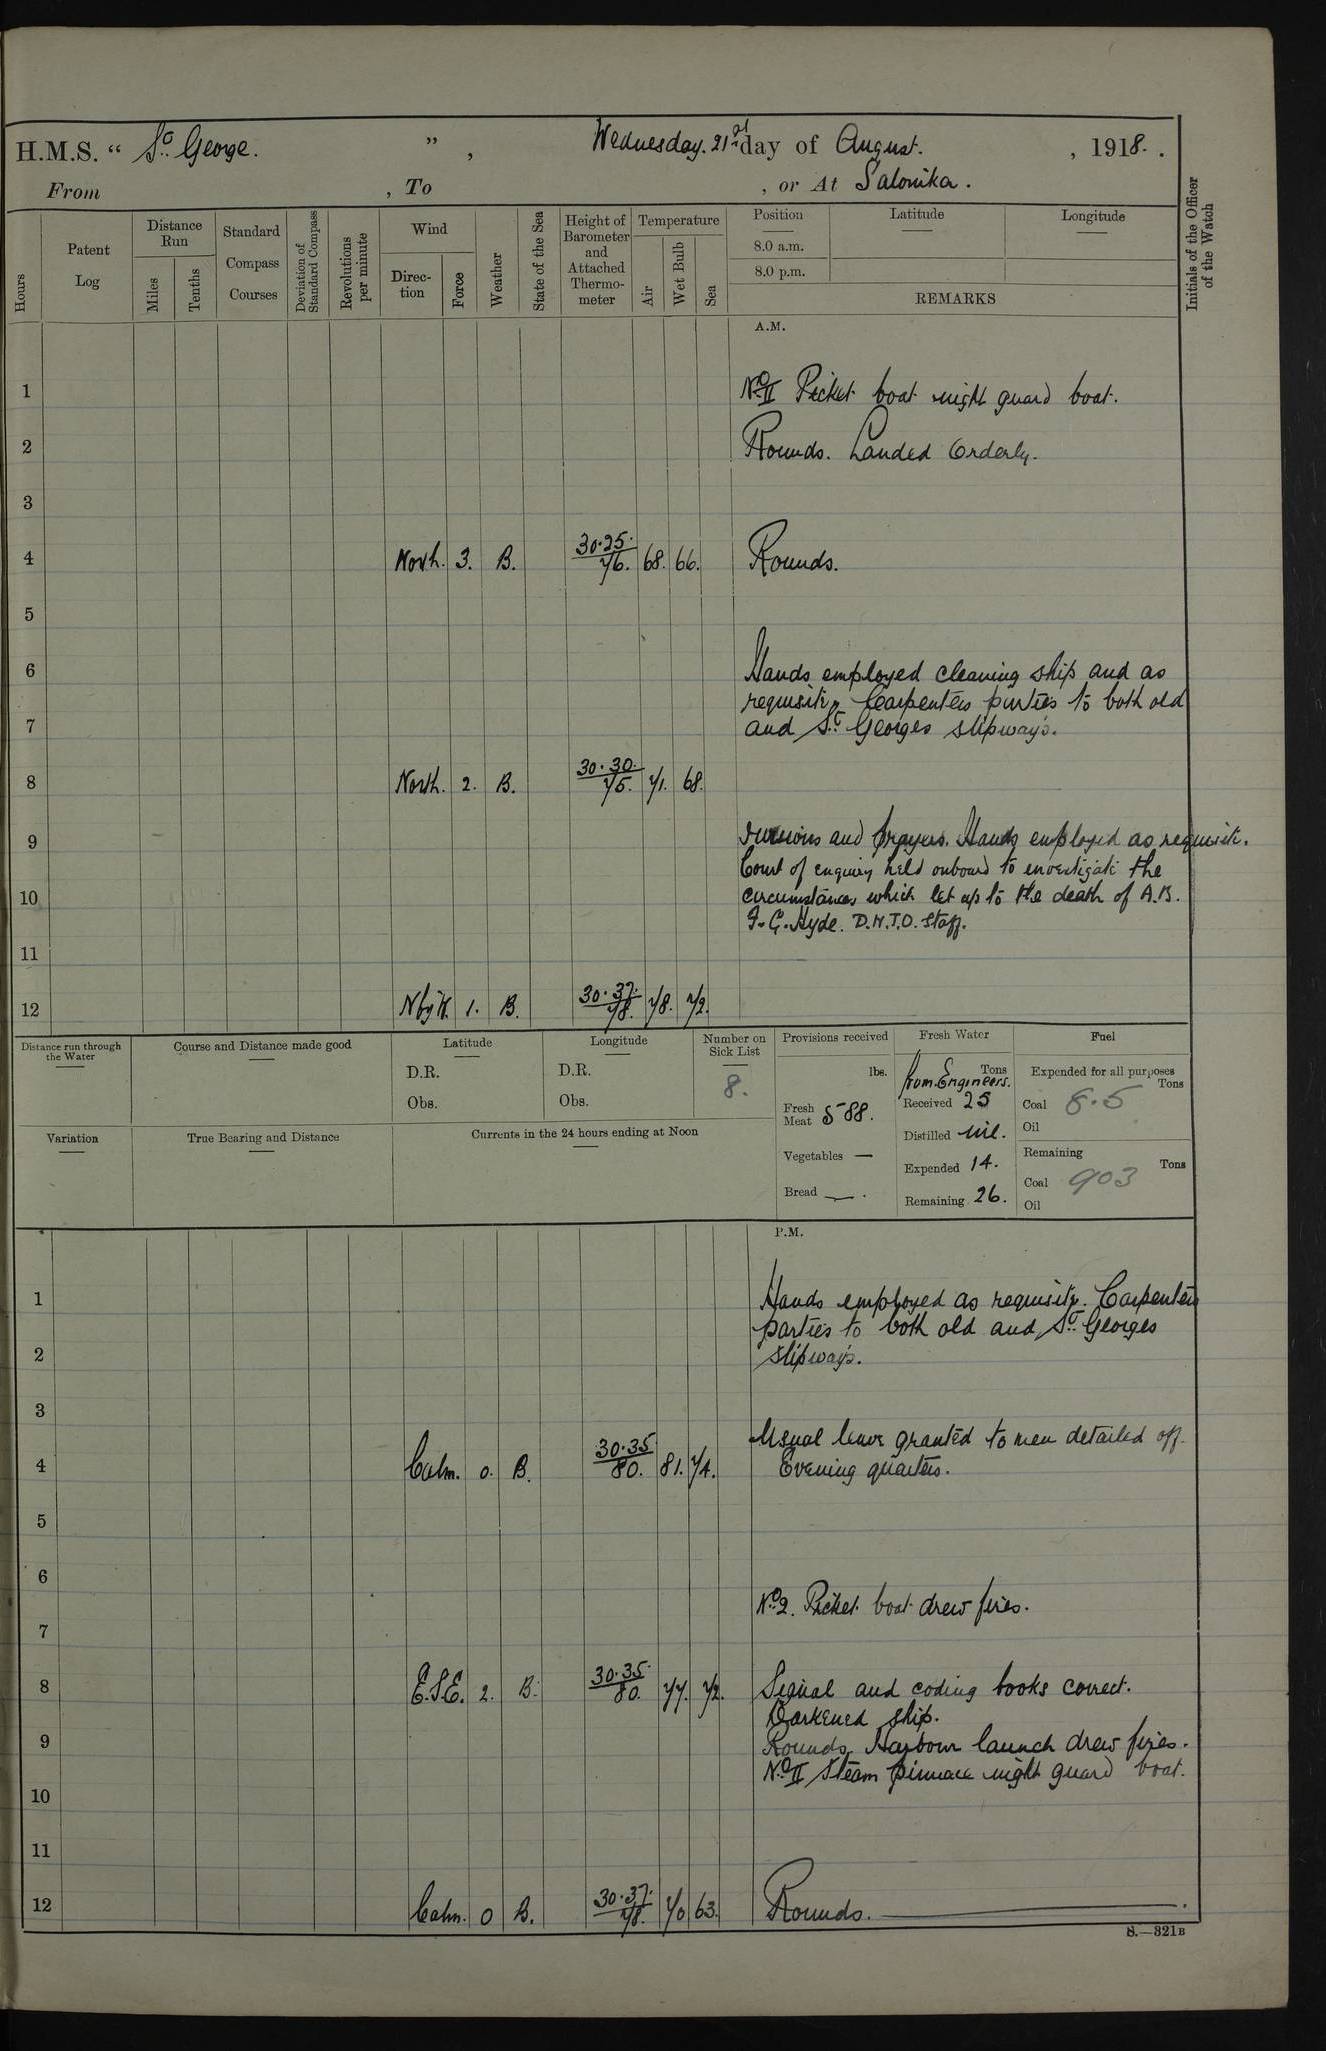 H.M.S. “ St George. ” , Wednesday. 21st day of August. , 1918. .
From , To , or At Salonika.
Hours
Patent Log
Distance Run
Miles
Tenths
Standard Compass Courses
Deviation of Standard Compass
Revolutions per minute
Wind
Direction
Force
Weather
State of the Sea
Height of Barometer and Attached Thermometer
Temperature
Air
Wet Bulb
Sea
Position
8.0 a.m.
8.0 p.m.
Latitude
Longitude
REMARKS
Initials of the Officer of the Watch
A.M.
1 No II Picket boat night guard boat.
2 Rounds. Landed Orderly.
3
4 North. 3. B. 30.25. 76. 68. 66. Rounds.
5
6 Hands employed cleaning ship and as
requisite Carpenters parties to both old
7 and St Georges slipways.
8 North. 2. B. 30.30. 75. 71. 68.
9 Divisions and prayers. Hands employed as requisite.
Court of enquiry held onboard to investigate the
10 circumstances which let up to the death of A.B.
Hyde. D.N.T.O. Staff.
11
12 N by W. 1. B. 30.37. 78. 78. 72.
Distance run through the Water
Course and Distance made good
Latitude
D.R.
Obs.
Longitude
D.R.
Obs.
Number on Sick List
8.
Provisions received
lbs.
Fresh Meat 588.
Vegetables —
Bread — .
Fresh Water
Tons
from Engineers.
Received 25
Distilled nil.
Expended 14.
Remaining 26.
Fuel
Expended for all purposes
Tons
Coal 8.5
Oil
Remaining
Tons
Coal 903
Oil
Variation
True Bearing and Distance
Currents in the 24 hours ending at Noon
P.M.
1 Hands employed as requisite. Carpenters
parties to both old and St Georges
2 slipways.
3
Usual leave granted to men detailed off.
4 Calm. 0. B. 30.35 80. 81. 74. Evening quarters.
5
6
No 2. Picket boat drew fires.
7
8 E.S.E. 2. B. 30.35. 80. 77. 72. Signal and coding books correct.
Darkened ship.
9 Rounds, Harbour launch drew fires.
No II Steam pinnace night guard boat.
10
11
12 Calm. 0 B. 30.37. 78. 70 63. Rounds.
S.—321B